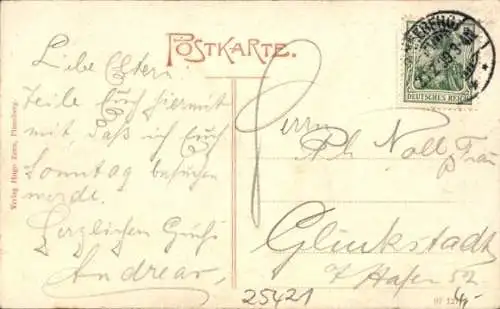 POSTKARTE.
Liebe Eltern!
Teile Euch hiermit
mit, daß ich Euch
Sonntag besuchen
werde.
Herzlichen Gruß
Andreas,
Herrn
Ph. Noll Frau
Glückstadt
Hafen 52
DEUTSCHES REICH
25421
Verlag Hugo Zorn, Flensburg.